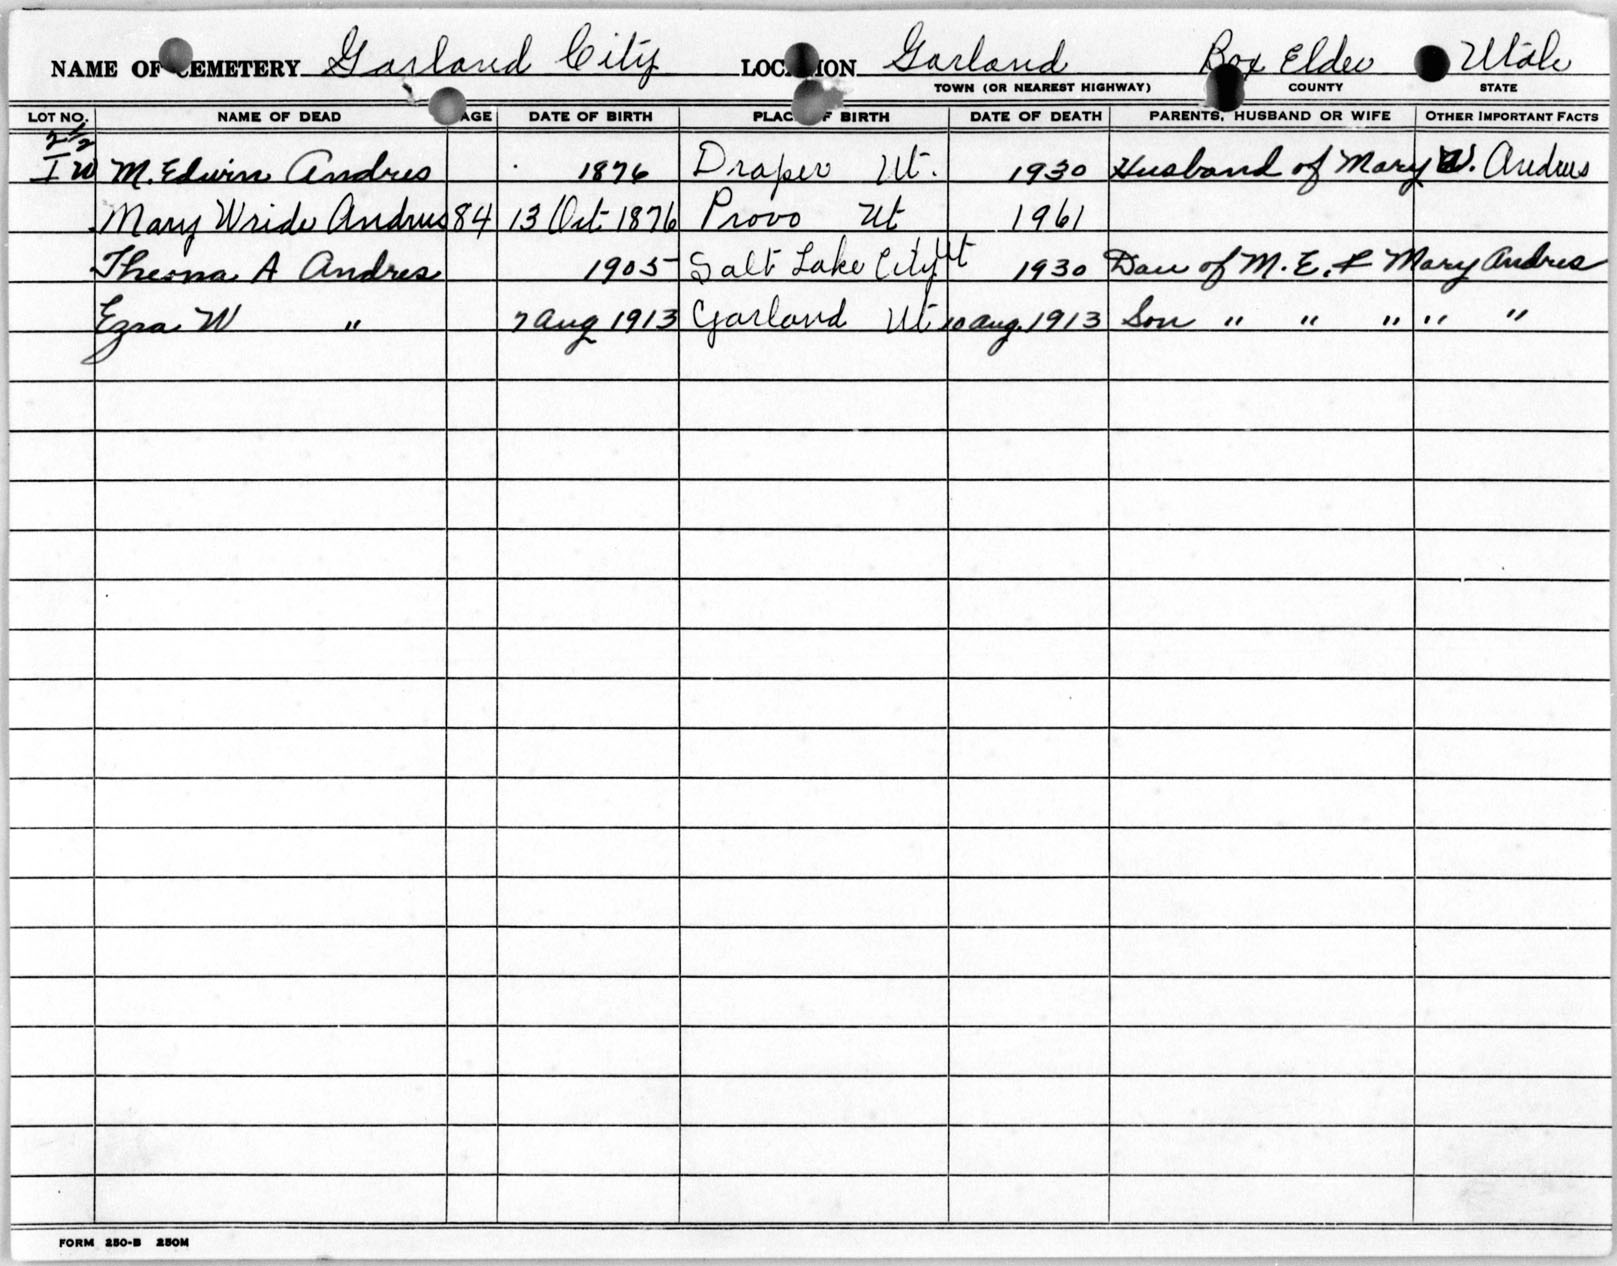 NAME OF CEMETERY Garland City LOCATION Garland Box Elder Utah
TOWN (OR NEAREST HIGHWAY) COUNTY STATE
LOT NO. NAME OF DEAD AGE DATE OF BIRTH PLACE OF BIRTH DATE OF DEATH PARENTS, HUSBAND OR WIFE OTHER IMPORTANT FACTS
I W M. Edwin Andrus 1876 Draper Ut. 1930 Husband of Mary W. Andrus
Mary Wride Andrus 84 13 Oct 1876 Provo Ut 1961
Theona A Andrus 1905 Salt Lake City Ut 1930 Dau of M. E. & Mary Andrus
Ezra W " 7 Aug 1913 Garland Ut 10 Aug. 1913 Son " " " " "
FORM 250-B 250M